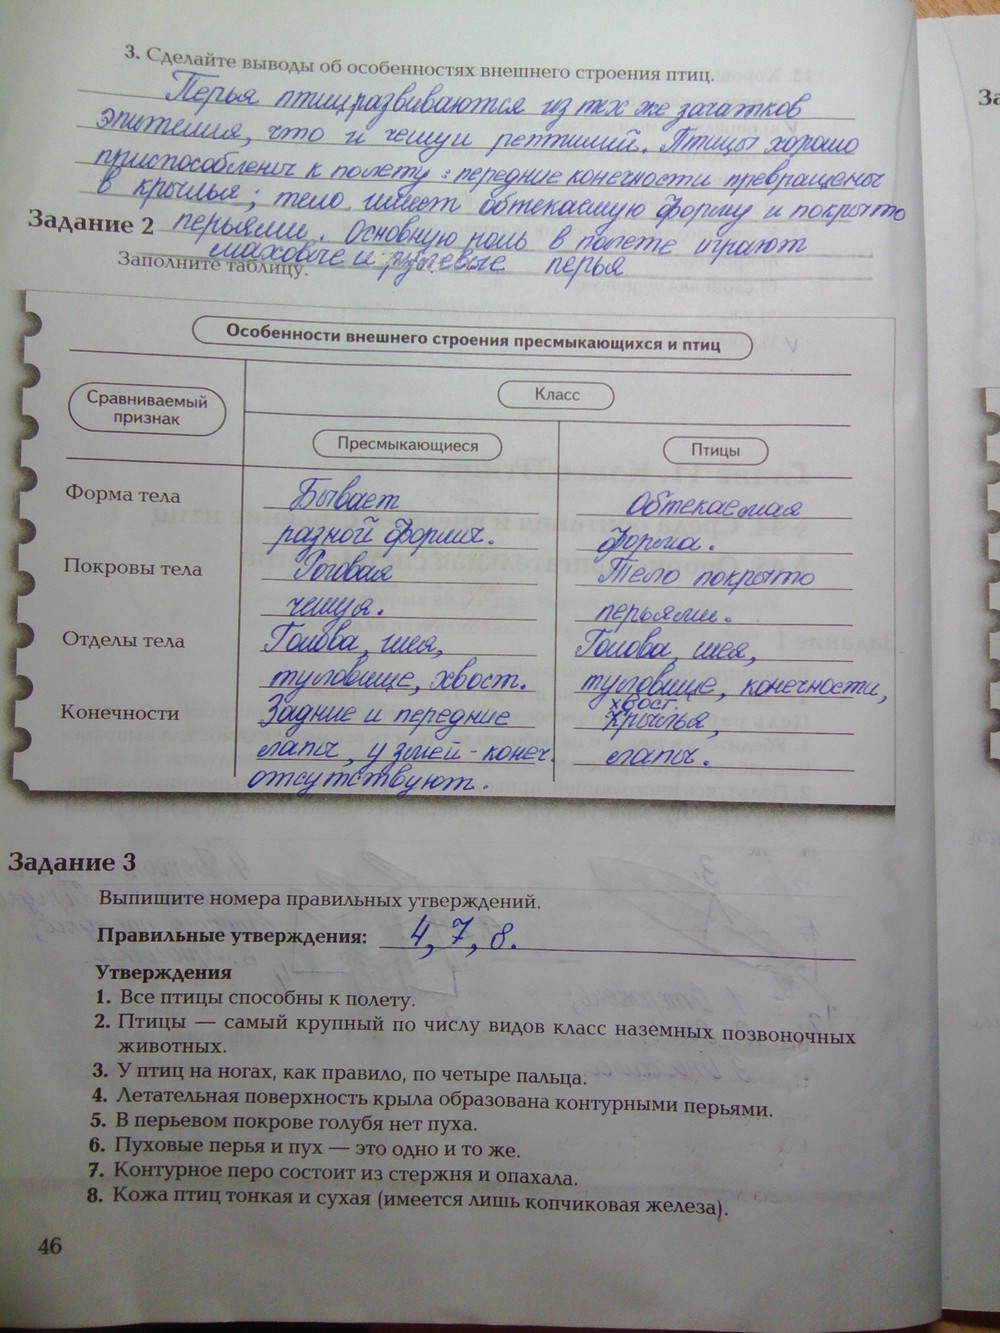 3. Сделайте выводы об особенностях внешнего строения птиц.
Перья птиц развиваются из тех же зачатков
эпителия, что и чешуи рептилий. Птицы хорошо
приспособлены к полету: передние конечности превращены
в крылья; тело имеет обтекаемую форму и покрыто
Задание 2 перьями. Основную роль в полете играют
маховые и рулевые перья
Заполните таблицу.
Особенности внешнего строения пресмыкающихся и птиц
Сравниваемый признак
Класс
Пресмыкающиеся
Птицы
Форма тела
Бывает
разной формы.
Обтекаемая
форма.
Покровы тела
Роговая
чешуя.
Тело покрыто
перьями.
Отделы тела
Голова, шея,
туловище, хвост.
Голова, шея,
туловище, конечности,
хвост.
Конечности
Задние и передние
лапы, у змей - конеч.
отсутствуют.
Крылья,
лапы.
Задание 3
Выпишите номера правильных утверждений.
Правильные утверждения: 4, 7, 8.
Утверждения
1. Все птицы способны к полету.
2. Птицы — самый крупный по числу видов класс наземных позвоночных
животных.
3. У птиц на ногах, как правило, по четыре пальца.
4. Летательная поверхность крыла образована контурными перьями.
5. В перьевом покрове голубя нет пуха.
6. Пуховые перья и пух — это одно и то же.
7. Контурное перо состоит из стержня и опахала.
8. Кожа птиц тонкая и сухая (имеется лишь копчиковая железа).
46
За